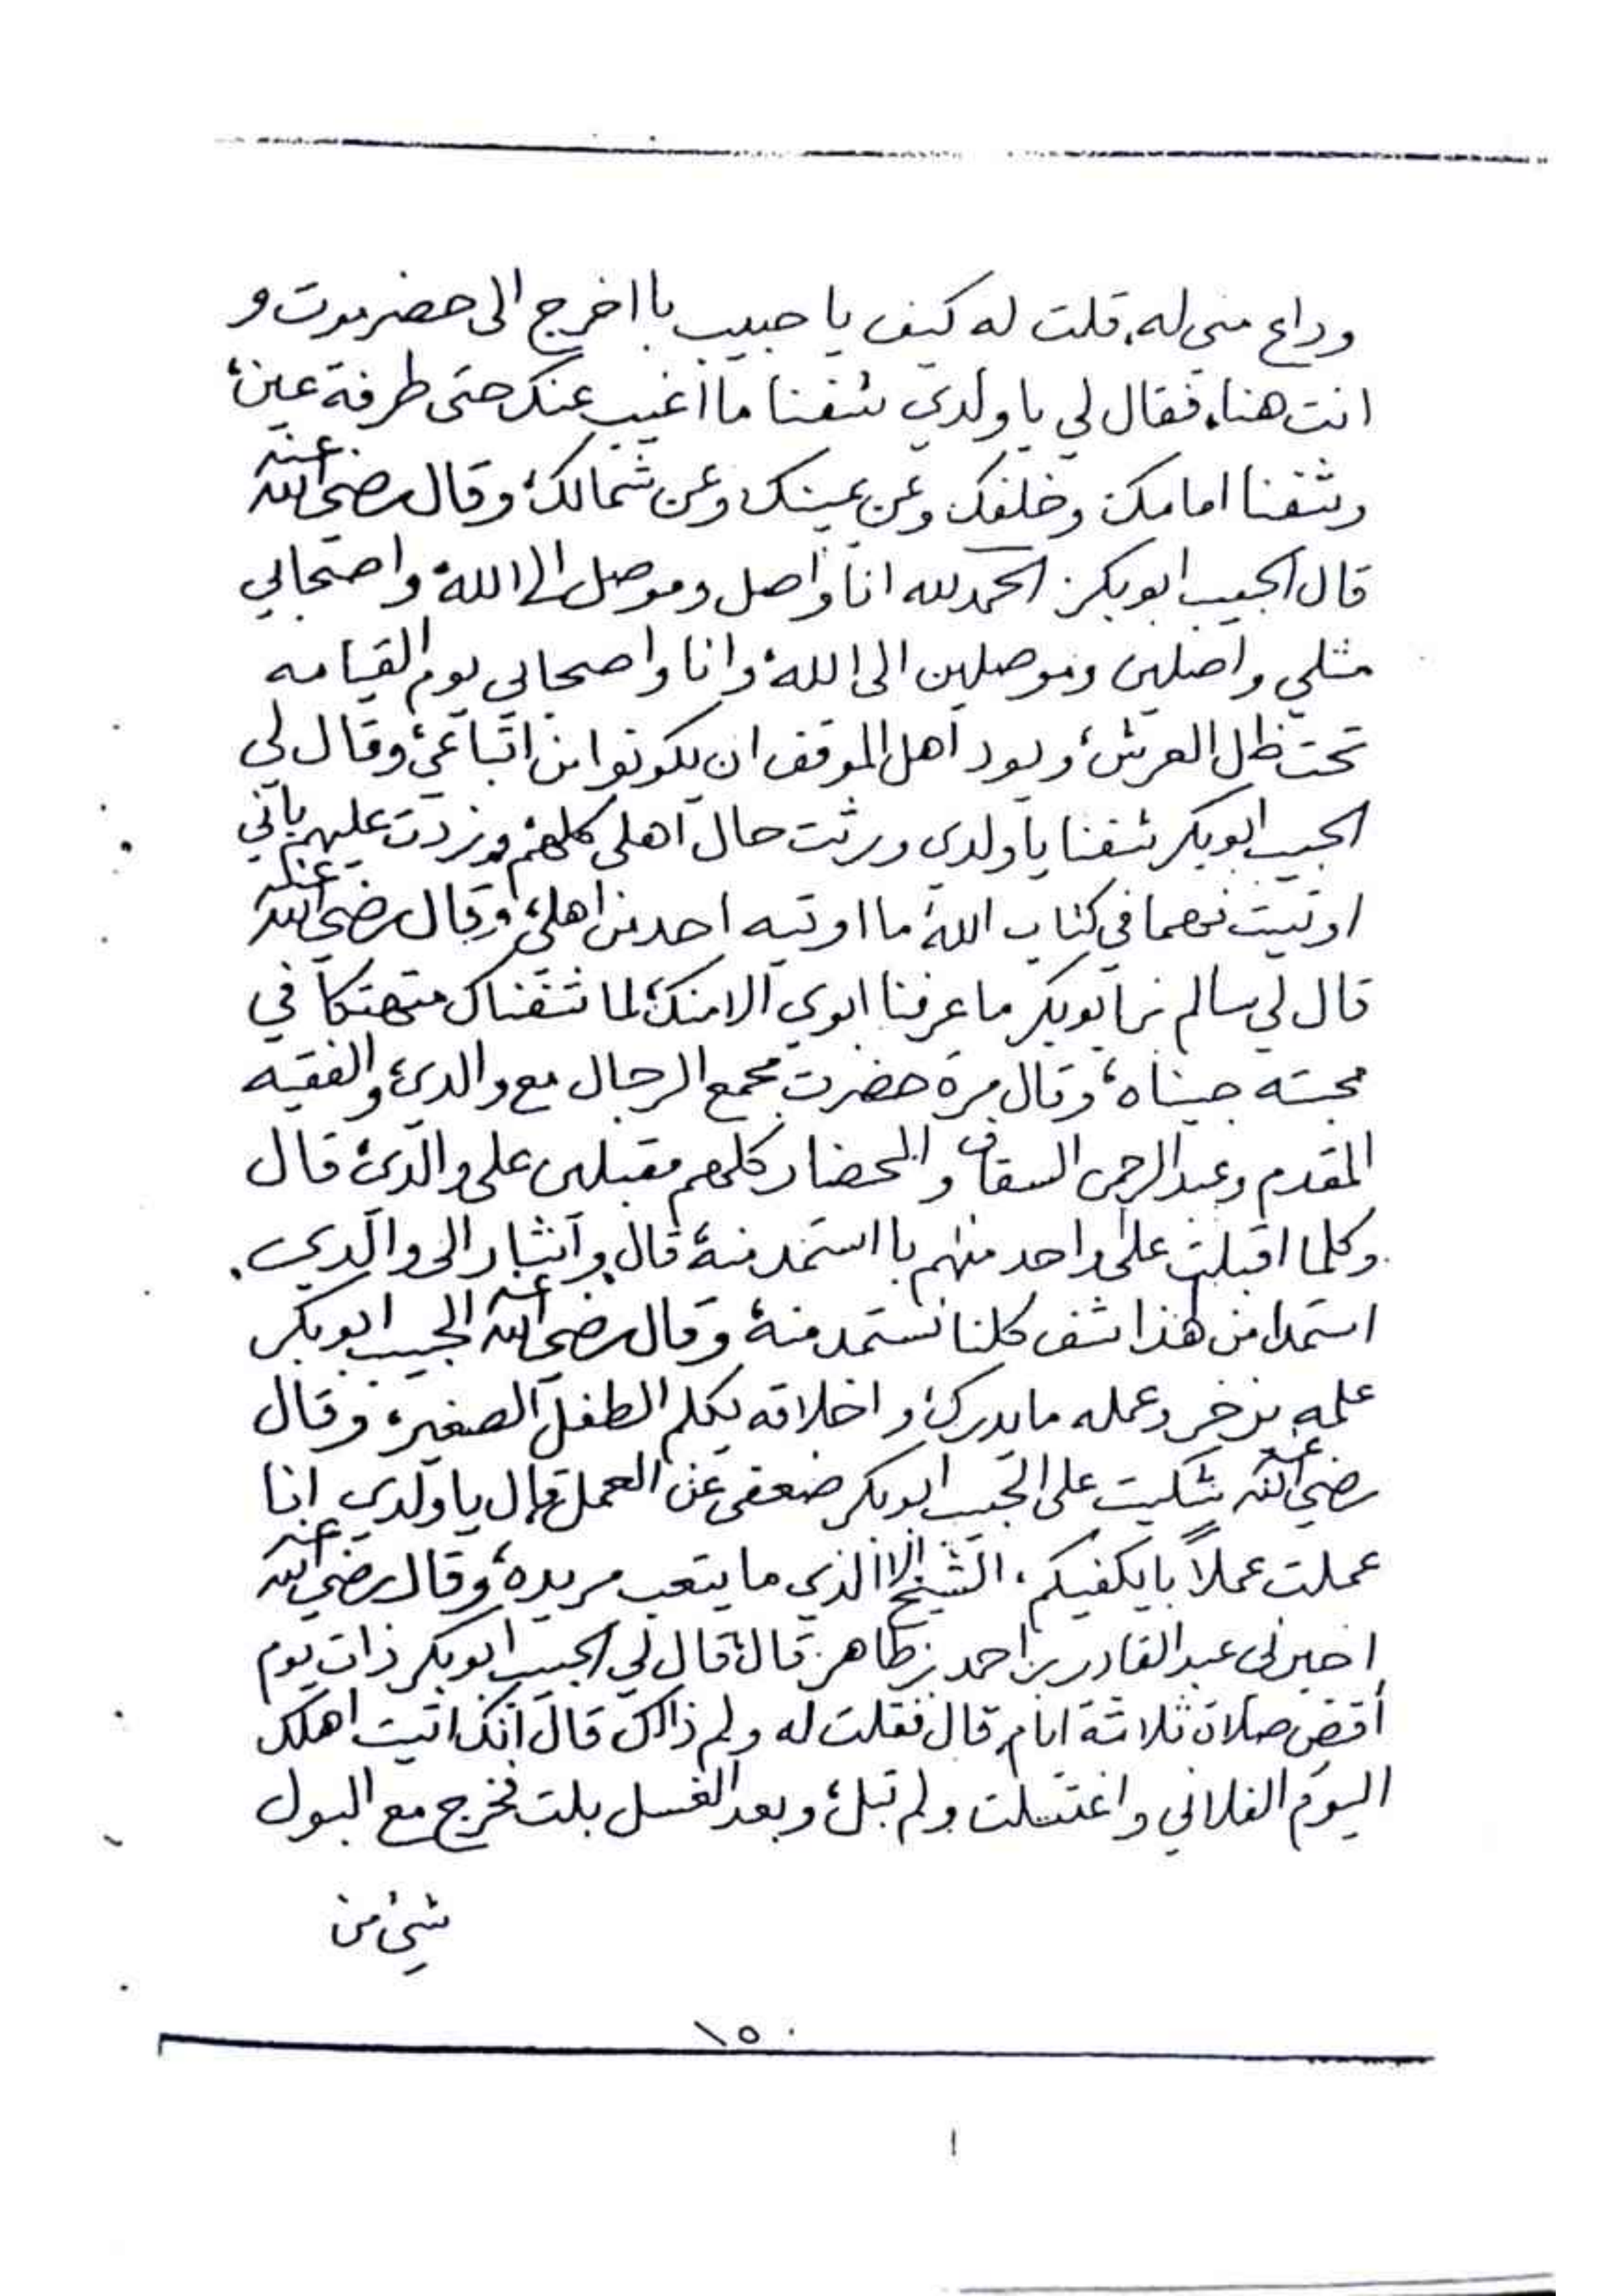 وداع مني له، قلت له كيف يا حبيب با اخرج الى حضرموت و
انت هنا، فقال لي يا ولدي شفنا ما اغيب عنك حتى طرفة عين،
وشفنا امامك وخلفك وعن يمينك وعن شمالك، وقال رضي الله عنه
قال الحبيب ابوبكر الحمد لله انا واصل وموصل الى الله، واصحابي
مثلي واصلين وموصلين الى الله، وانا واصحابي يوم القيامه
تحت ظل العرش، ويود اهل الموقف ان يكونوا من اتباعي، وقال لي
الحبيب ابوبكر شفنا يا ولدي ورثت حال اهلي كلهم وزدت عليهم باني
اوتيت فهما في كتاب الله ما اوتيه احد من اهلي، وقال رضي الله عنه
قال لي سالم بن ابوبكر ما عرفنا ابوي الا منك، لما شفناك متهتكا في
محبته حبيناه، وقال مرة حضرت مجمع الرجال مع والدي، والفقيه
المقدم وعبدالرحمن السقاف والمحضار كلهم مقبلين على والدي، قال
وكلما اقبلت على واحد منهم با استمد منه، قال واشار الى والدي
استمد من هذا شف كلنا نستمد منه، وقال رضي الله عنه الحبيب ابوبكر
علمه يزخر وعمله ما يدرك، واخلاقه يكلم الطفل الصغير، وقال
رضي الله عنه شكيت على الحبيب ابوبكر ضعفي عن العمل قال يا ولدي انا
عملت عملاً با يكفيكم، الشيخ الا الذي ما يتعب مريده، وقال رضي الله عنه
اخبرني عبدالقادر بن احمد بن طاهر قال، قال لي الحبيب ابوبكر ذات يوم
أقض صلاة ثلاثة ايام، قال فقلت له ولم ذالك قال انك اتيت اهلك
اليوم الفلاني واغتسلت ولم تبل، وبعد الغسل بلت فخرج مع البول
شيء من
١٥٠